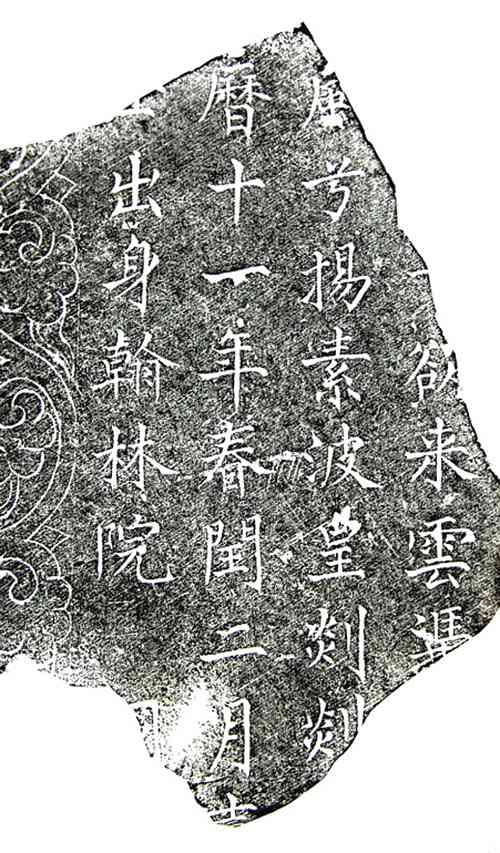 欲来雲
兮揚素波皇剡剡
曆十一年春閏二月
出身翰林院